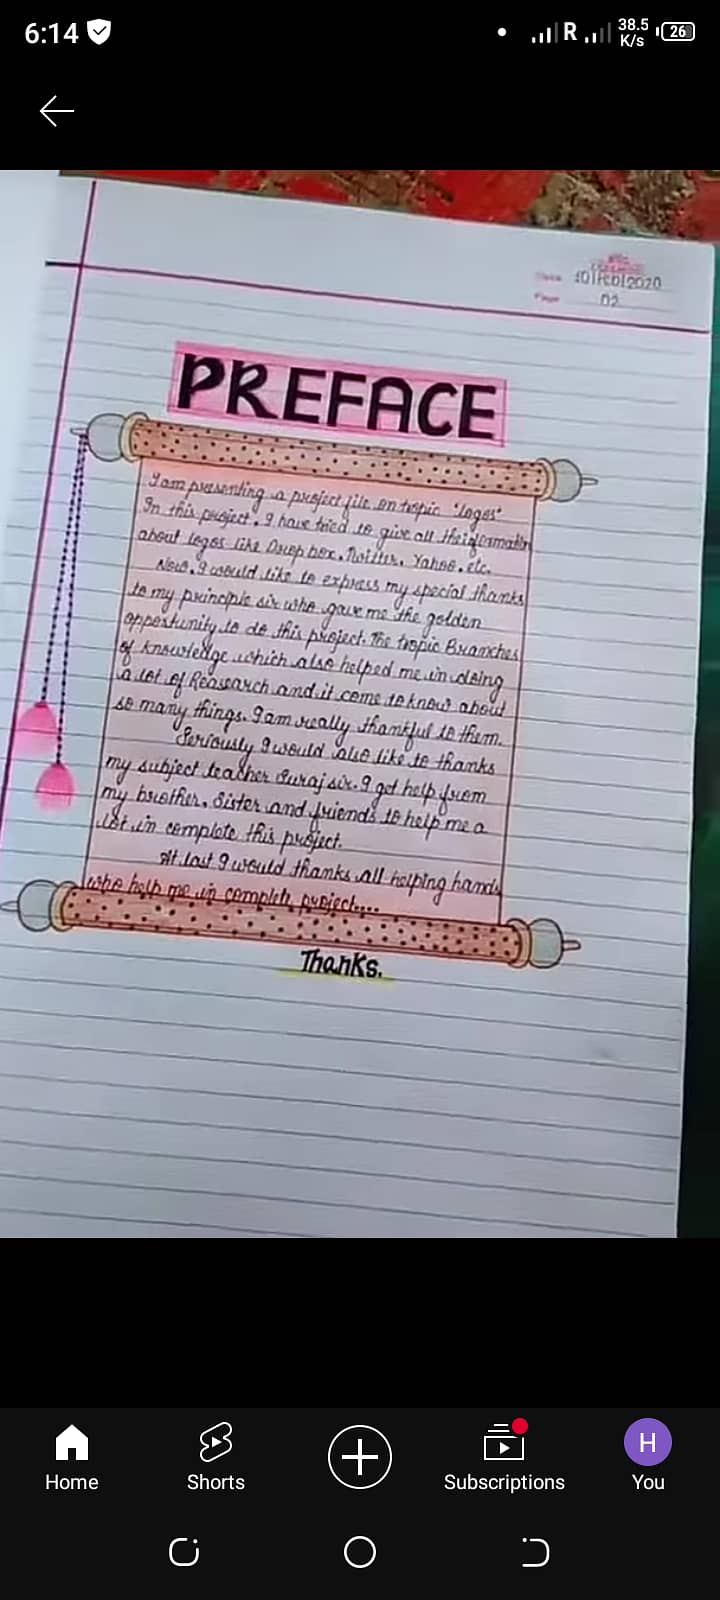 6:14
R
38.5
K/s
26
Date 10|Feb|2020
Page 02
PREFACE
I am presenting a project file on tropic "logos".
In this project, I have tried to give all the information
about logos like Drop box, Twitter, Yahoo, etc.
Now, I would like to express my special thanks
to my principle sir who gave me the golden
opportunity to do this project. The tropic Branches
of knowledge which also helped me in doing
a lot of Reasearch and it come to know about
so many things. I am really thankful to them.
Seriously I would also like to thanks
my subject teacher Suraj sir. I got help from
my brother, Sister and friends to help me a
lot in complete this project.
At last I would thanks all helping hands
who help me in complete project....
Thanks.
Home
Shorts
Subscriptions
H
You